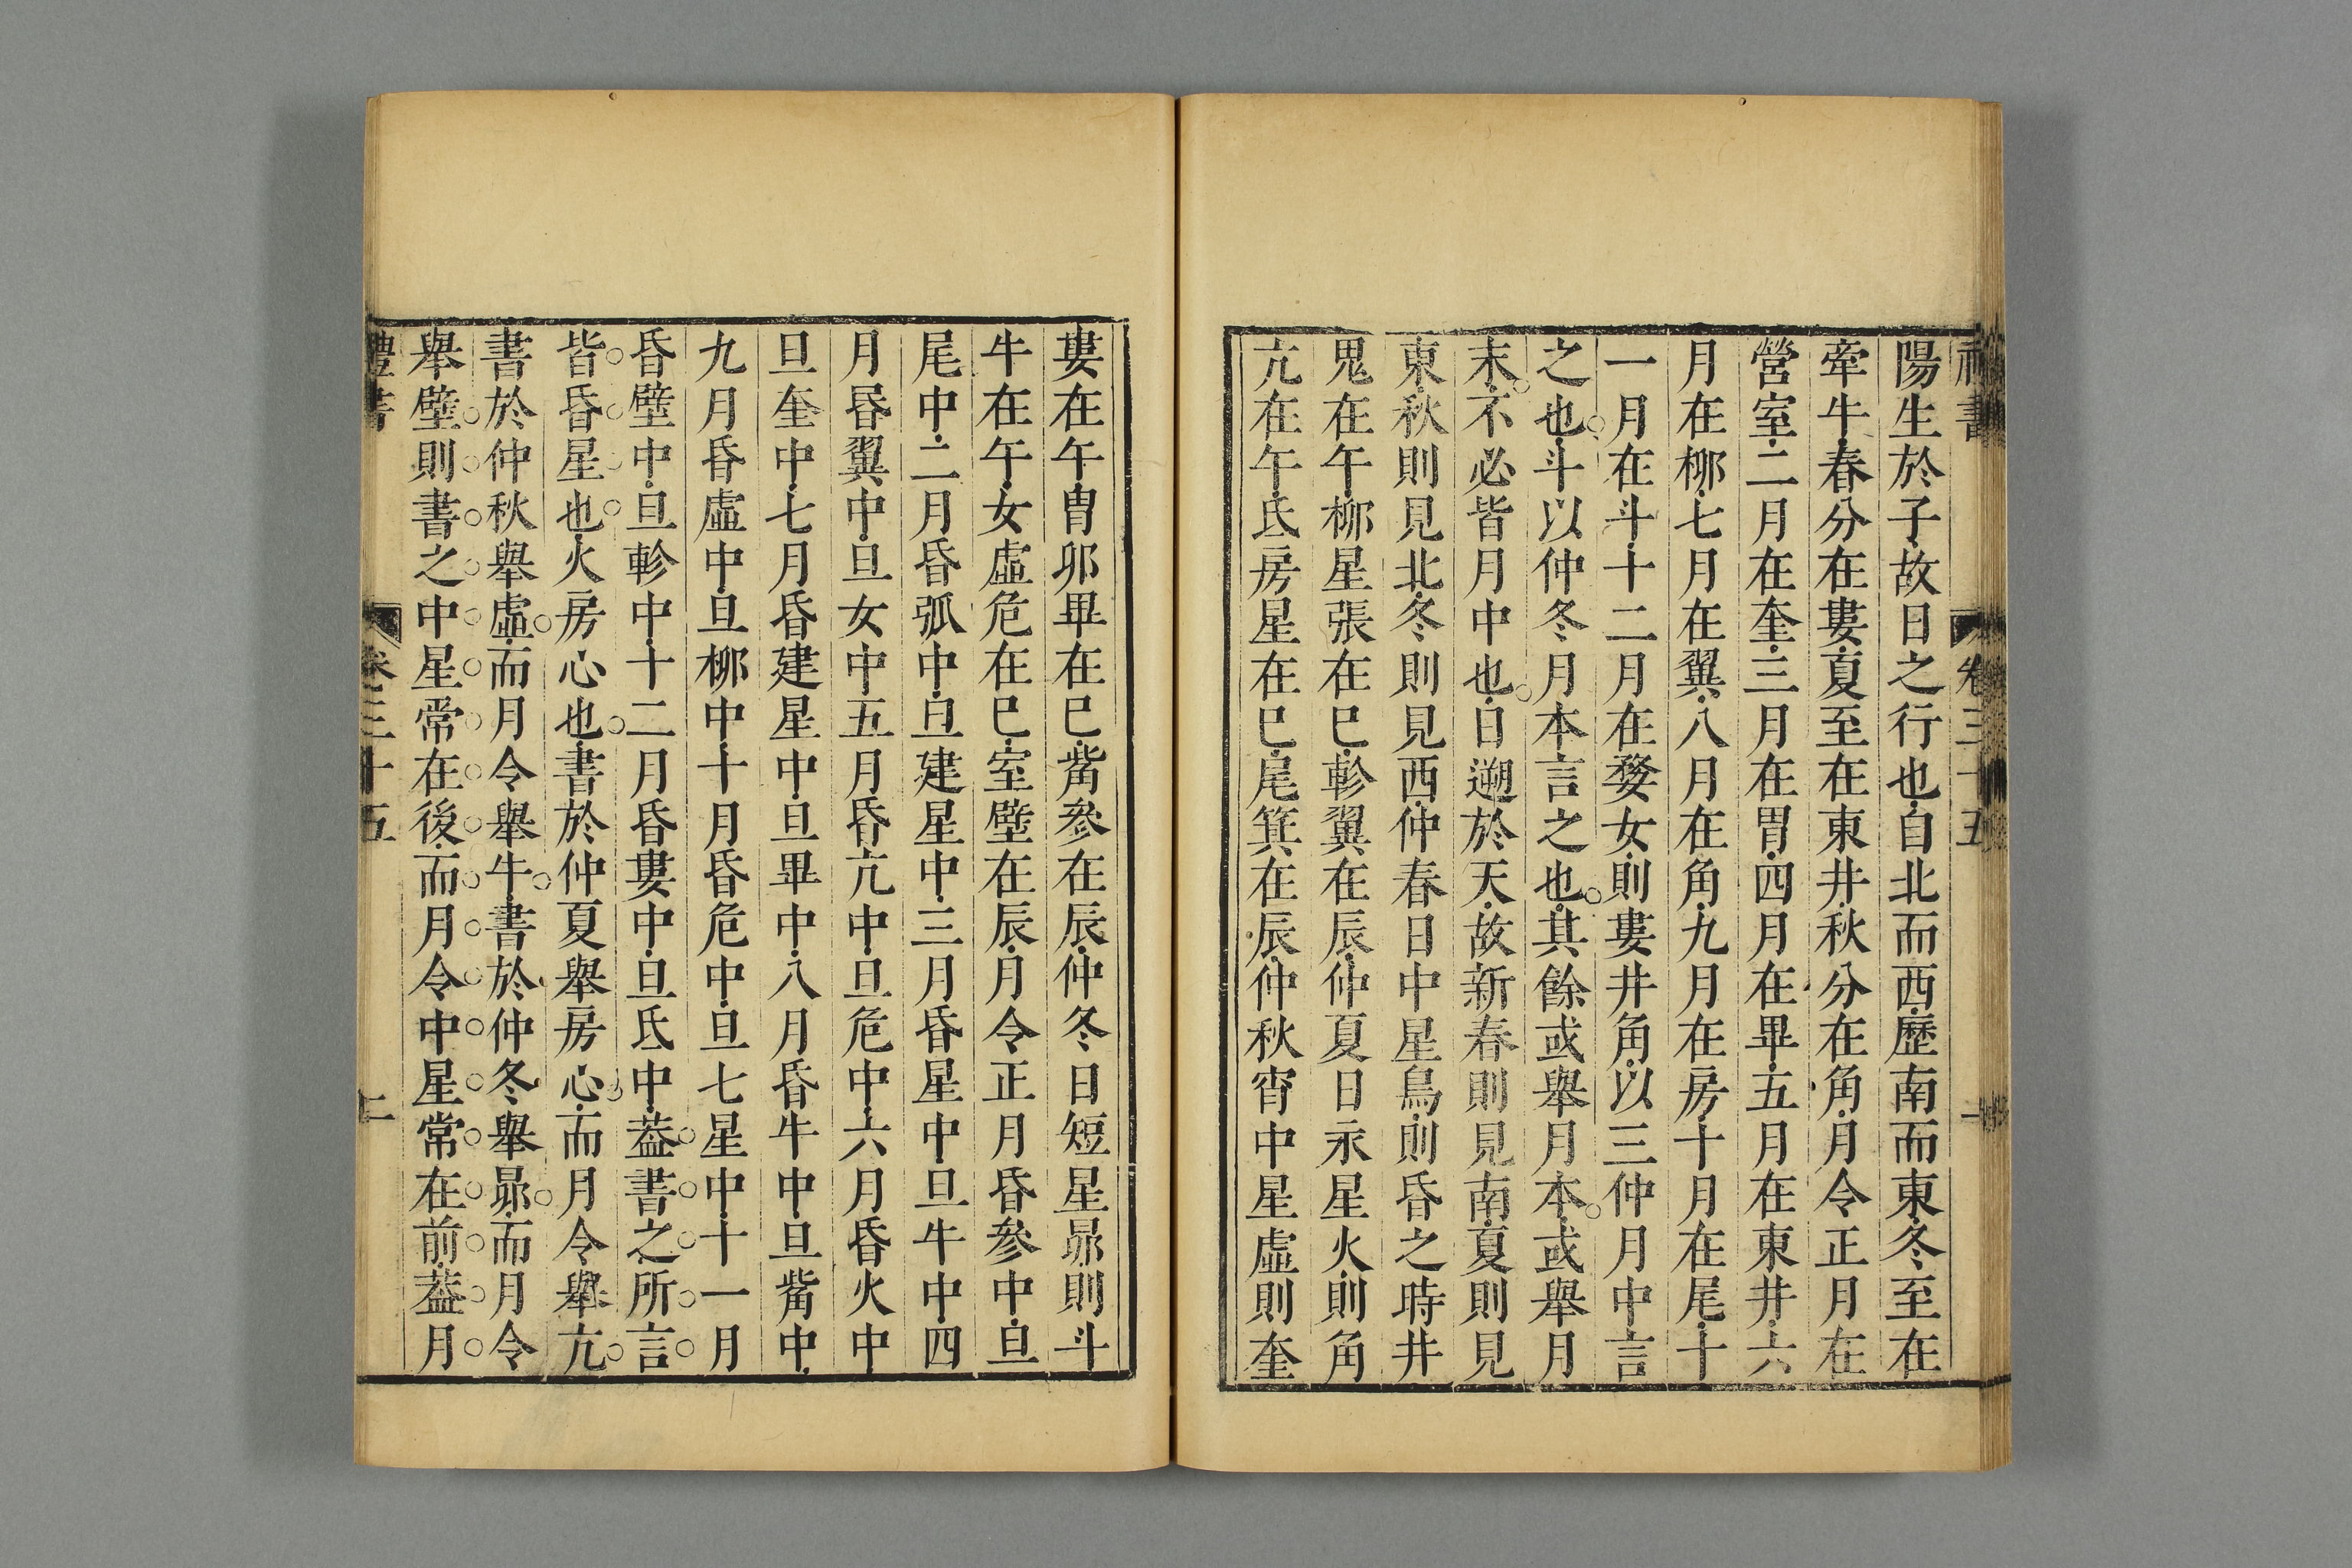 禮書 卷三十五 一
陽生於子故日之行也自北而西歷南而東冬至在
牽牛春分在婁夏至在東井秋分在角月令正月在
營室二月在奎三月在胃四月在畢五月在東井六
月在桺七月在翼八月在角九月在房十月在尾十
一月在斗十二月在婺女則婁井角以三仲月中言
之也斗以仲冬月本言之也其餘或舉月本或舉月
末不必皆月中也日遡於天故新春則見南夏則見
東秋則見北冬則見西仲春日中星鳥則昏之時井
鬼在午桺星張在巳軫翼在辰仲夏日永星火則角
亢在午氐房星在巳尾箕在辰仲秋宵中星虛則奎
婁在午胃卯畢在巳觜參在辰仲冬日短星昴則斗
牛在午女虛危在巳室壁在辰月令正月昏參中旦
尾中二月昏弧中旦建星中三月昏星中旦牛中四
月昏翼中旦女中五月昏亢中旦危中六月昏火中
旦奎中七月昏建星中旦畢中八月昏牛中旦觜中
九月昏虛中旦桺中十月昏危中旦七星中十一月
昏壁中旦軫中十二月昏婁中旦氐中葢書之所言
皆昏星也火房心也書於仲夏舉房心而月令舉亢
書於仲秋舉虛而月令舉牛書於仲冬舉昴而月令
舉壁則書之中星常在後而月令中星常在前葢月
禮書 卷三十五 二